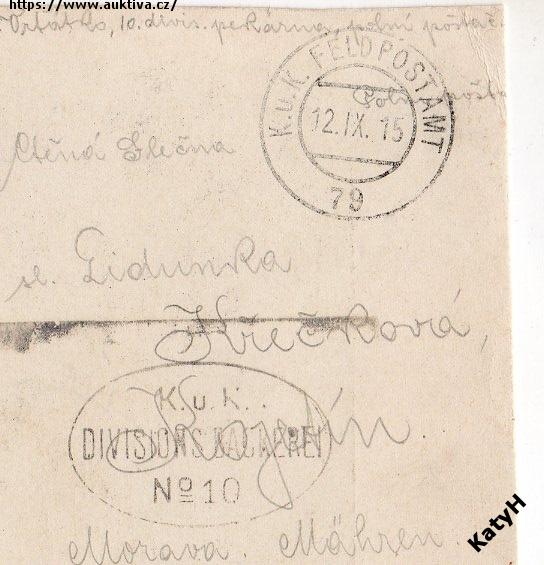 https://www.auktiva.cz/
10. divis. pekárna, polní pošta č.
K.u.K. FELDPOSTAMT
12.IX.15
79
Polní pošta
Ctěná Slečna
sl. Lidunka
Křečková,
K.u.K.
DIVISIONSBÄCKEREI
No 10
Morava. Mähren.
KatyH